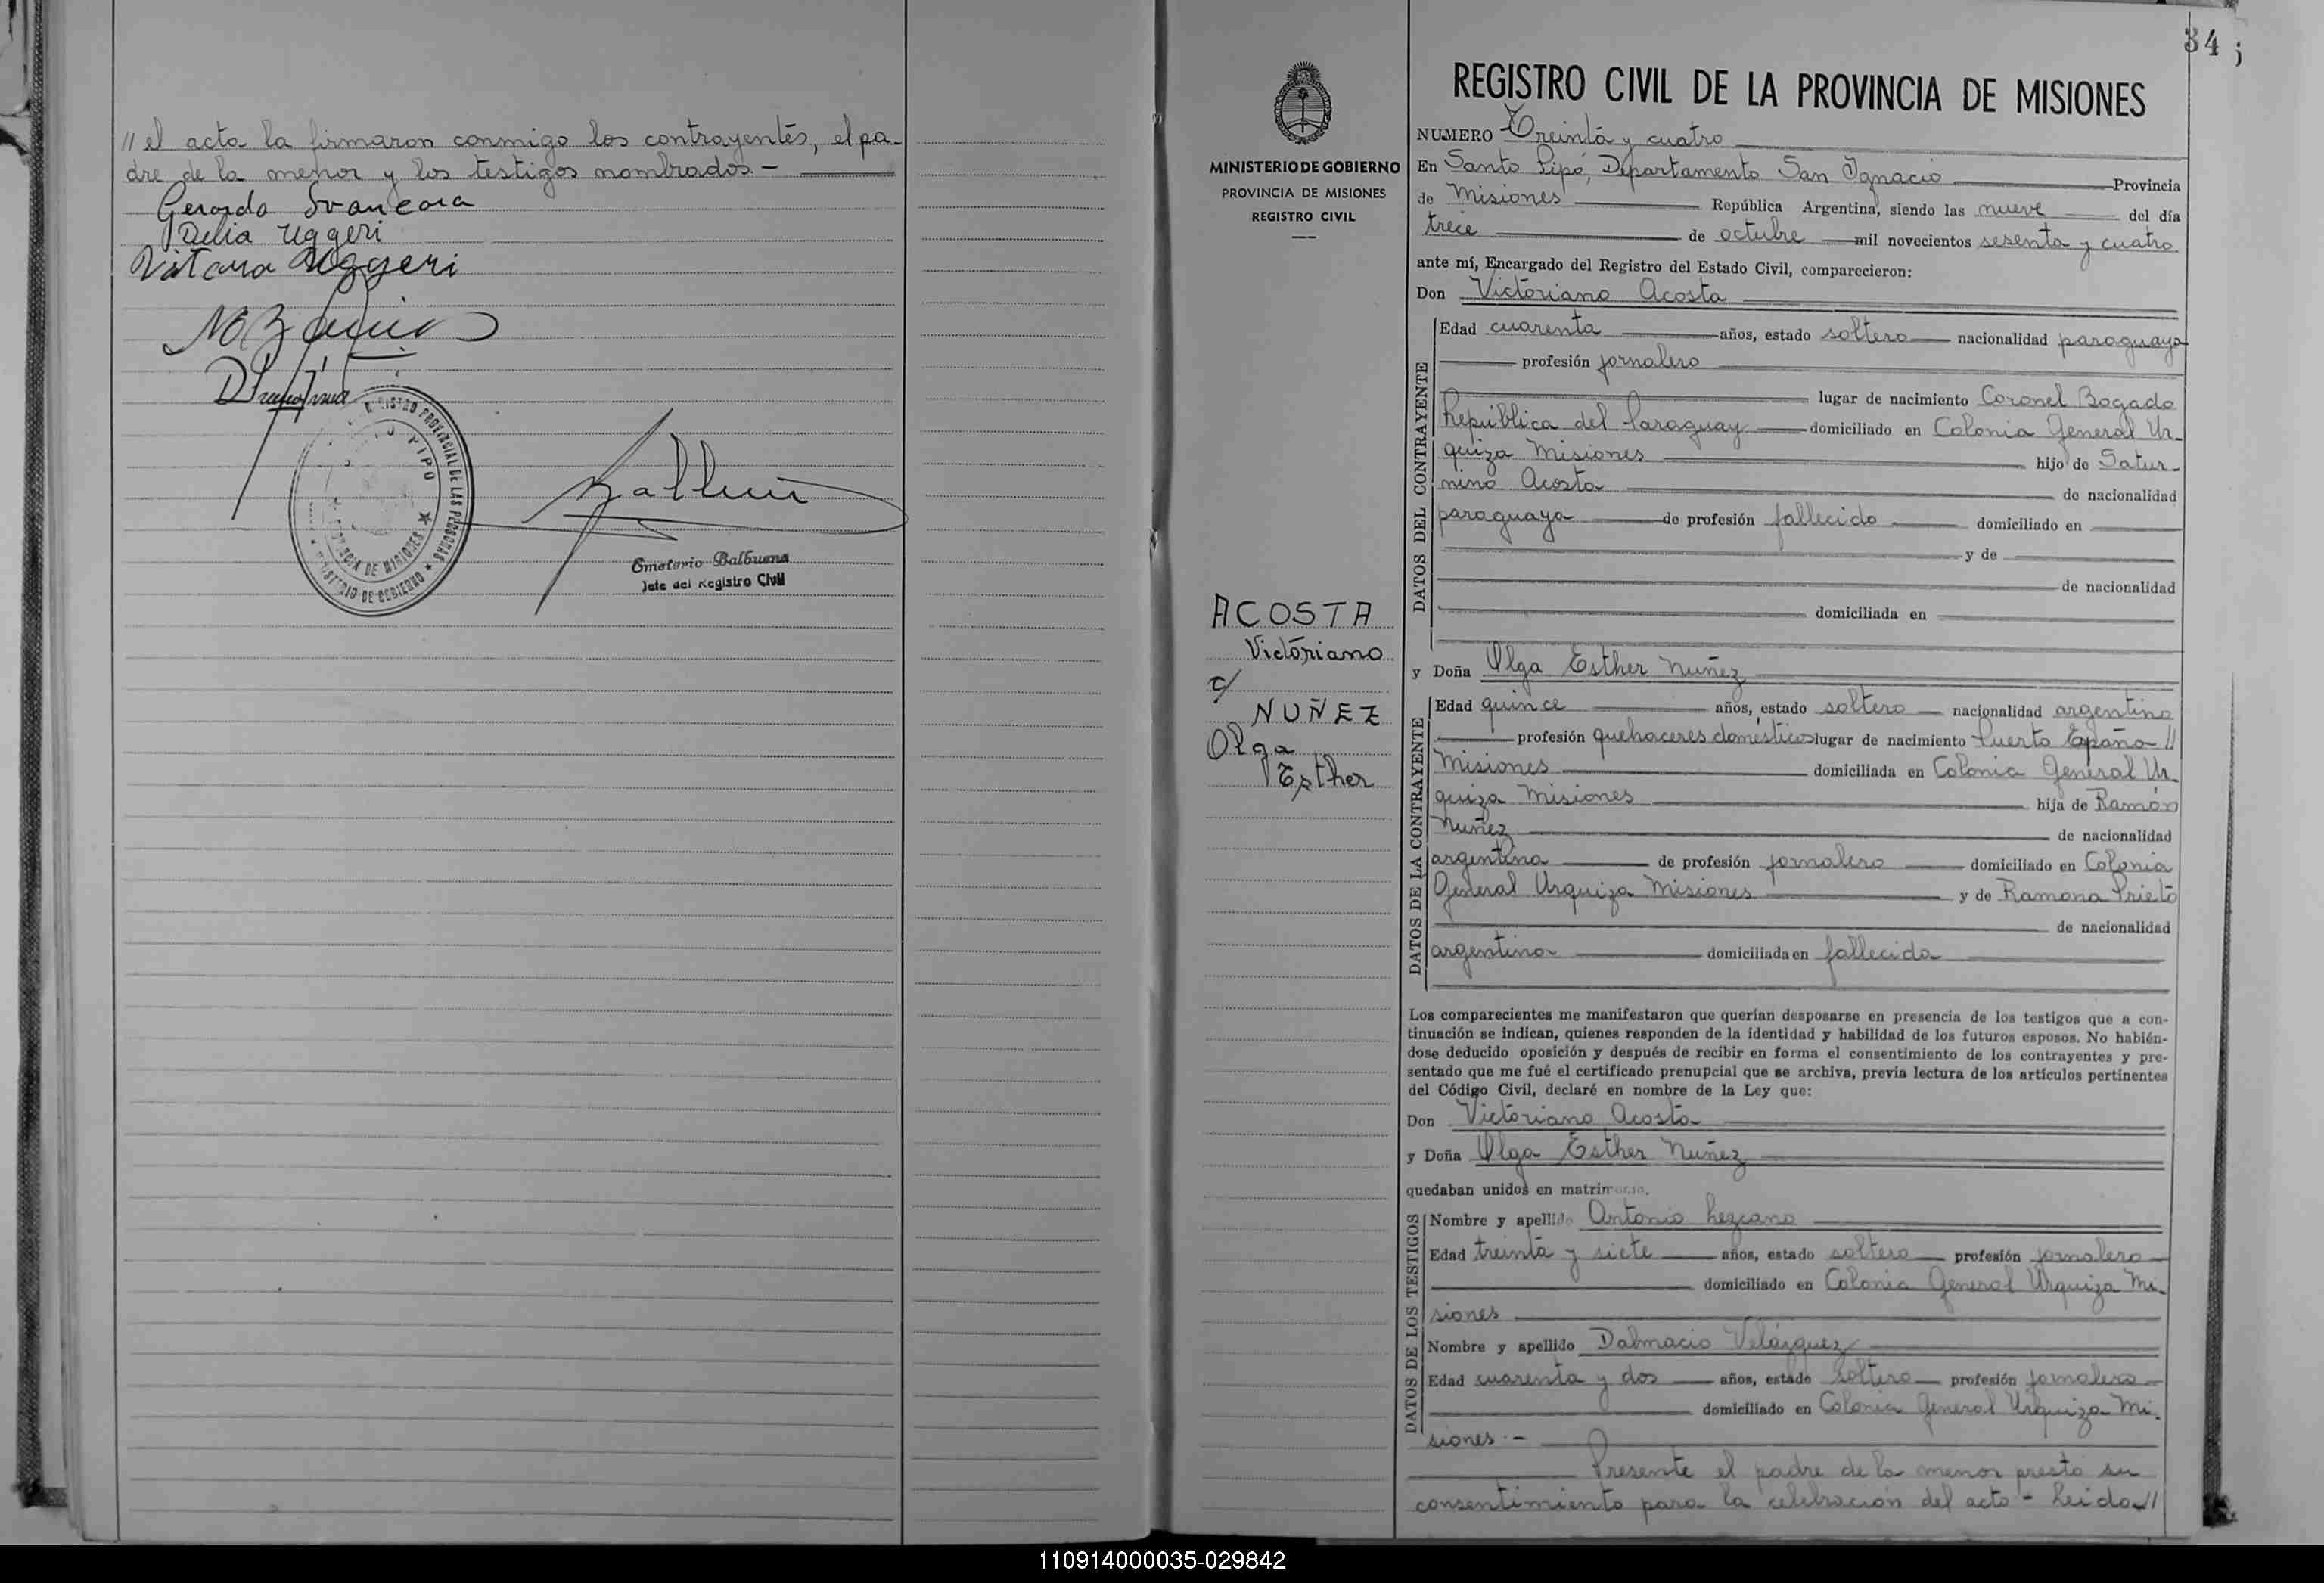 // el acta la firmaron conmigo los contrayentes, el pa-
dre de la menor y los testigos nombrados.-
Gerardo Svancara
Delia Uggeri
Uggeri
REGISTRO PROVINCIAL DE LAS PERSONAS
MINISTERIO DE GOBIERNO
PROVINCIA DE MISIONES
Emeterio Balbuena
Jefe del Registro Civil
34
MINISTERIO DE GOBIERNO
PROVINCIA DE MISIONES
REGISTRO CIVIL
ACOSTA
Victoriano
c/
NUÑEZ
Olga
Esther
REGISTRO CIVIL DE LA PROVINCIA DE MISIONES
NUMERO Treinta y cuatro
En Santo Pipó, Departamento San Ignacio Provincia
de Misiones República Argentina, siendo las nueve del día
trece de octubre mil novecientos sesenta y cuatro
ante mí, Encargado del Registro del Estado Civil, comparecieron:
Don Victoriano Acosta
DATOS DEL CONTRAYENTE
Edad cuarenta años, estado soltero nacionalidad paraguaya
profesión jornalero
lugar de nacimiento Coronel Bogado
República del Paraguay domiciliado en Colonia General Ur-
quiza Misiones hijo de Satur-
nino Acosta de nacionalidad
paraguaya de profesión fallecido domiciliado en
y de
de nacionalidad
domiciliada en
y Doña Olga Esther Nuñez
DATOS DE LA CONTRAYENTE
Edad quince años, estado soltera nacionalidad argentina
profesión quehaceres domésticos lugar de nacimiento Puerto España //
Misiones domiciliada en Colonia General Ur-
quiza Misiones hija de Ramón
Nuñez de nacionalidad
argentina de profesión jornalero domiciliado en Colonia
General Urquiza Misiones y de Ramona Prieto
de nacionalidad
argentina domiciliada en fallecida
Los comparecientes me manifestaron que querían desposarse en presencia de los testigos que a con-
tinuación se indican, quienes responden de la identidad y habilidad de los futuros esposos. No habién-
dose deducido oposición y después de recibir en forma el consentimiento de los contrayentes y pre-
sentado que me fué el certificado prenupcial que se archiva, previa lectura de los artículos pertinentes
del Código Civil, declaré en nombre de la Ley que:
Don Victoriano Acosta
y Doña Olga Esther Nuñez
quedaban unidos en matrimonio.
DATOS DE LOS TESTIGOS
Nombre y apellido Antonio Lezcano
Edad treinta y siete años, estado soltero profesión jornalero
domiciliado en Colonia General Urquiza Mi-
siones
Nombre y apellido Dalmacio Velázquez
Edad cuarenta y dos años, estado soltero profesión jornalero
domiciliado en Colonia General Urquiza Mi-
siones.-
Presente el padre de la menor presta su
consentimiento para la celebración del acto - Leida //
110914000035-029842